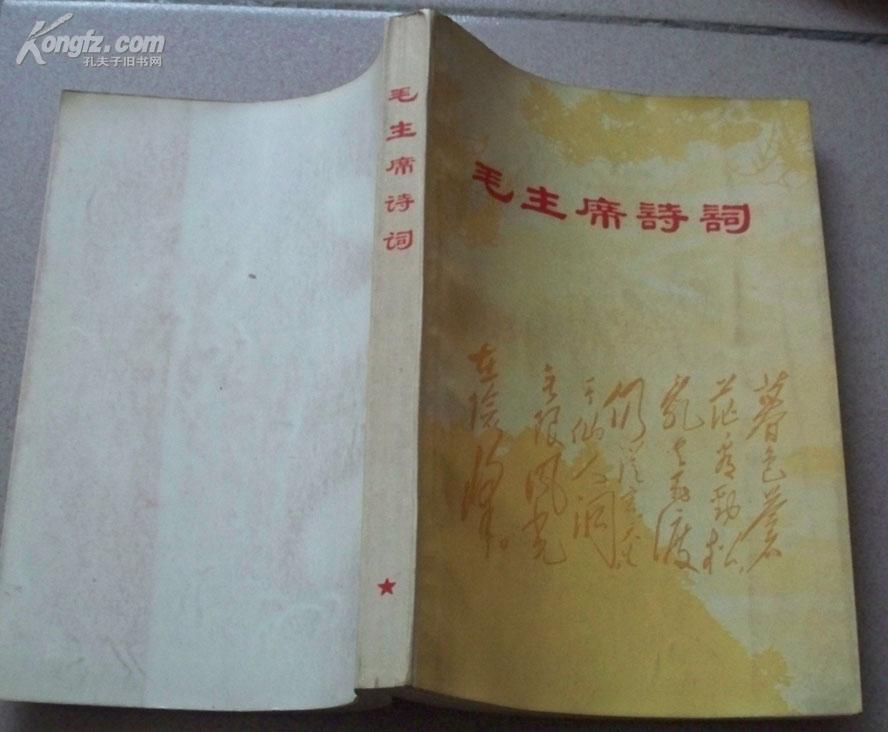 Kongfz.com
孔夫子旧书网
毛主席诗词
毛主席詩詞
暮色蒼
茫看勁松
乱云飞渡
仍從容天
生一仙人洞
无限风光
在險峰。